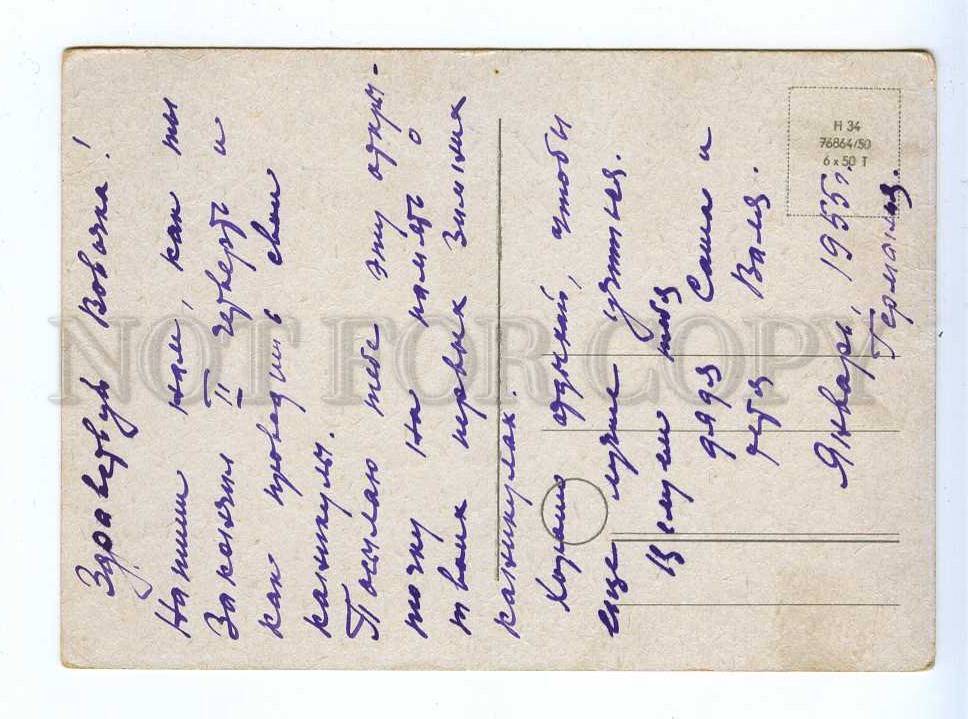 Здравствуй Вовочка!
Напиши нам, как ты
закончил II четверть и
как проводишь свои
каникулы.
Посылаю тебе эту откры-
точку на память о
твоих первых зимних
каникулах.
Хорошо отдыхай, чтобы
еще лучше учиться.
Целуем тебя
дядя Саша и
тетя Валя.
Январь, 1955г.
Германия.
H 34
76864/50
6 x 50 T
NOT FOR COPY